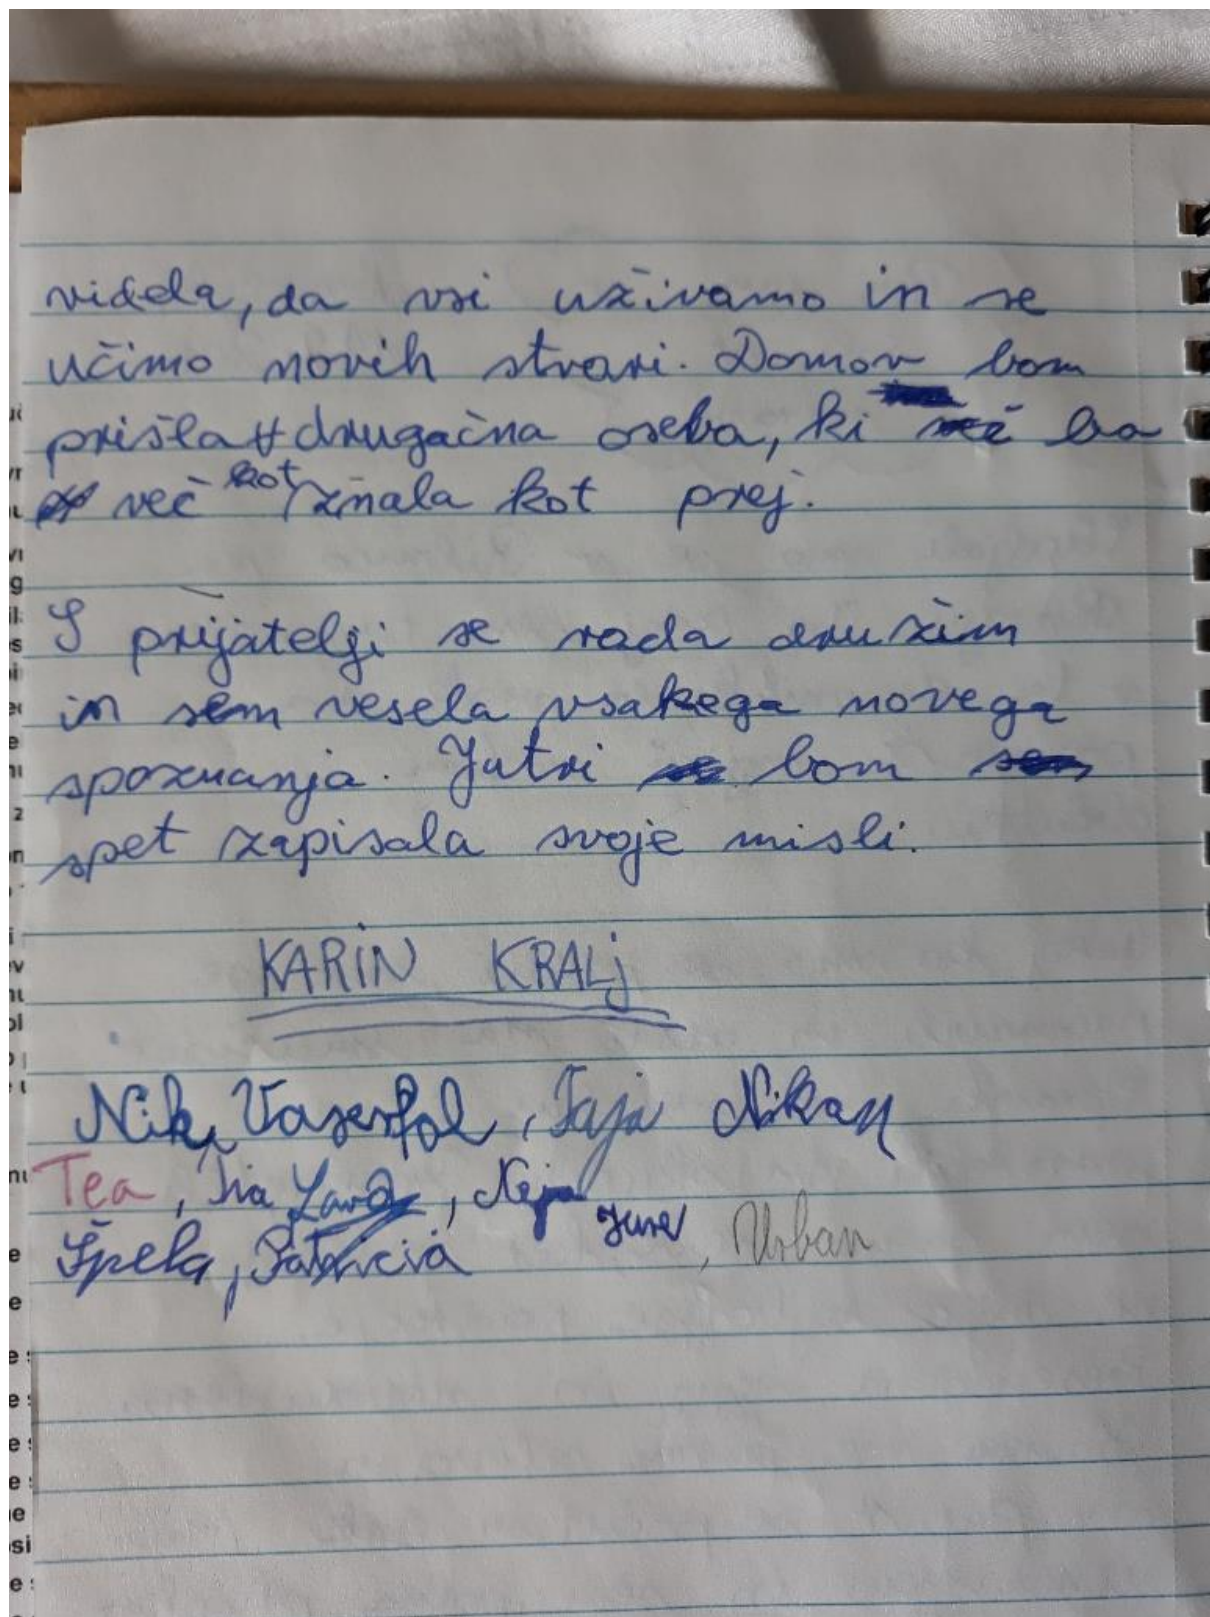 videla, da vsi uživamo in se
učimo novih stvari. Domov bom
prišla drugačna oseba, ki bo
več kot znala kot prej.
S prijatelji se rada družim
in sem vesela vsakega novega
spoznanja. Jutri bom
spet zapisala svoje misli.
KARIN KRALJ
Nik, Taja
Tea, Lara, Neja Jure, Urban
Špela, Patricia